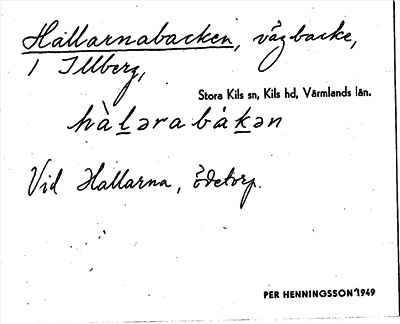 Hallarnabacken, vägbacke,
i Illberg,
Stora Kils sn, Kils hd, Värmlands län.
hàlərabákən
Vid Hallarna, ödetorp.
PER HENNINGSSON 1949